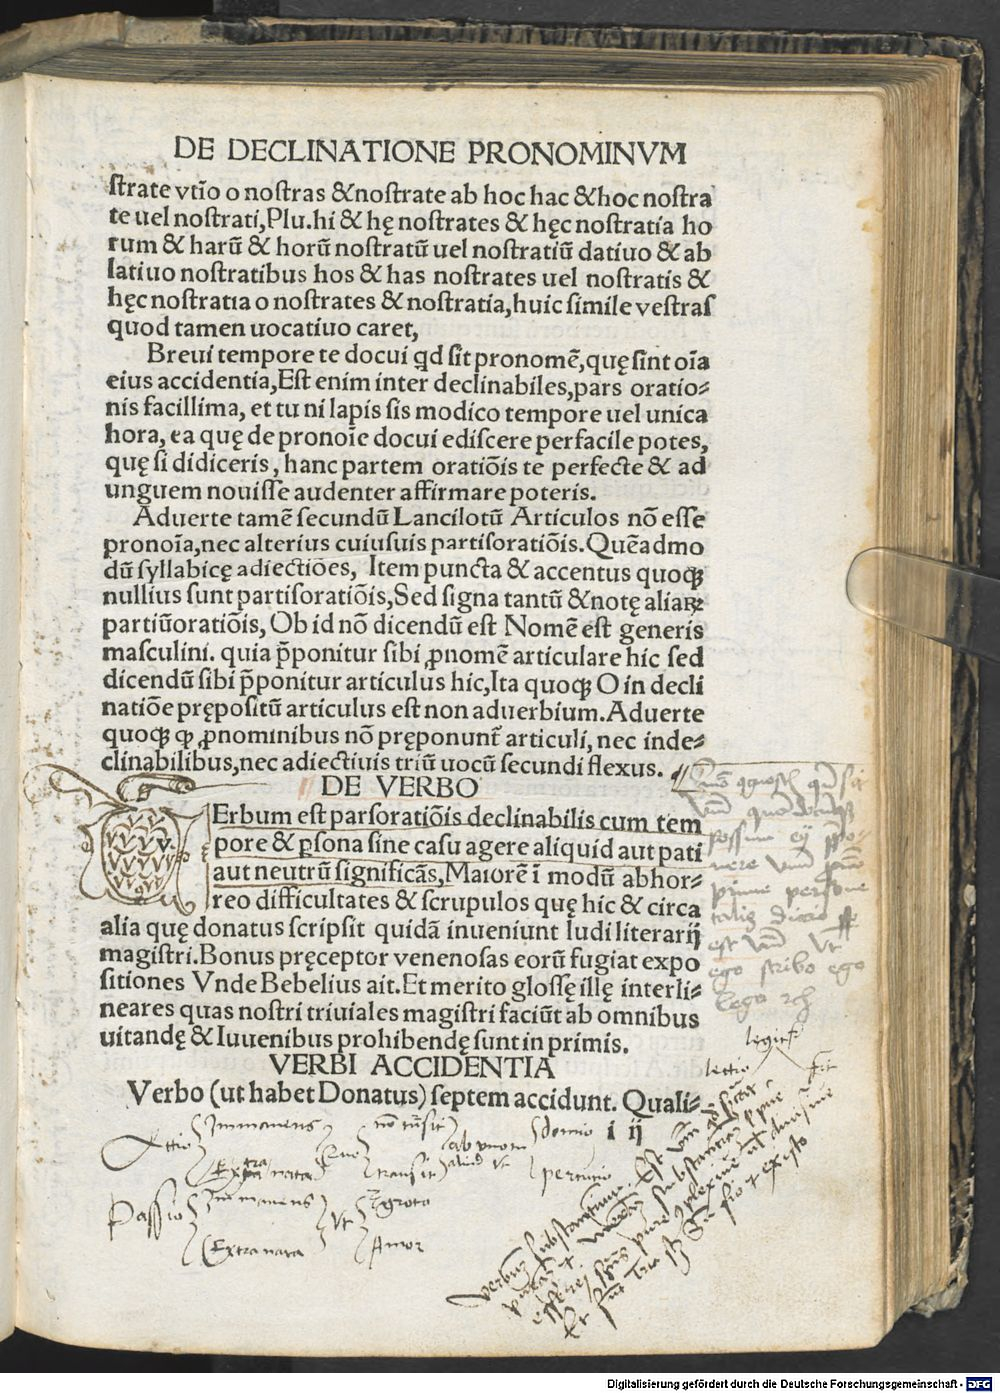 DE DECLINATIONE PRONOMINVM
strate vtĩo o nostras & nostrate ab hoc hac & hoc nostra
te uel nostrati, Plu. hi & hę nostrates & hęc nostratia ho
rum & harũ & horũ nostratũ uel nostratiũ datiuo & ab
latiuo nostratibus hos & has nostrates uel nostratis &
hęc nostratia o nostrates & nostratia, huic simile vestras
quod tamen uocatiuo caret,
Breui tempore te docui qd sit pronomẽ, quę sint oĩa
eius accidentia, Est enim inter declinabiles, pars oratio⸗
nis facillima, et tu ni lapis sis modico tempore uel unica
hora, ea quę de pronoĩe docui ediscere perfacile potes,
quę si didiceris, hanc partem oratiõis te perfecte & ad
unguem nouisse audenter affirmare poteris.
Aduerte tamẽ secundũ Lancilotũ Articulos nõ esse
pronoĩa, nec alterius cuiusuis partisoratiõis. Quẽadmo
dũ syllabicę adiectiões, Item puncta & accentus quoqꝫ
nullius sunt partisoratiõis, Sed signa tantũ & notę aliaꝝ
partiũoratiõis, Ob id nõ dicendũ est Nomẽ est generis
masculini. quia p̃ponitur sibi ꝓnomẽ articulare hic sed
dicendũ sibi p̃ponitur articulus hic, Ita quoqꝫ O in decli
natiõe prępositũ articulus est non aduerbium. Aduerte
quoqꝫ ꝙ ꝓnominibus nõ pręponunt̃ articuli, nec inde⸗
clinabilibus, nec adiectiuis triũ uocũ secundi flexus.
DE VERBO
VErbum est parsoratiõis declinabilis cum tem
pore & ꝑsona sine casu agere aliquid aut pati
aut neutrũ significãs, Maiorẽ ĩ modũ abhor⸗
reo difficultates & scrupulos quę hic & circa
alia quę donatus scripsit quidã inueniunt ludi literarij
magistri. Bonus pręceptor venenosas eorũ fugiat expo
sitiones Vnde Bebelius ait. Et merito glossę illę interli⸗
neares quas nostri triuiales magistri faciũt ab omnibus
uitandę & Iuuenibus prohibendę sunt in primis.
VERBI ACCIDENTIA
Verbo (ut habet Donatus) septem accidunt. Quali⸗
i ij
Actio
Immanens
Extranata
Passio
Immanens
Extranata
Vt
Egroto
Amor
ego scribo ego
lego
Digitalisierung gefördert durch die Deutsche Forschungsgemeinschaft - DFG